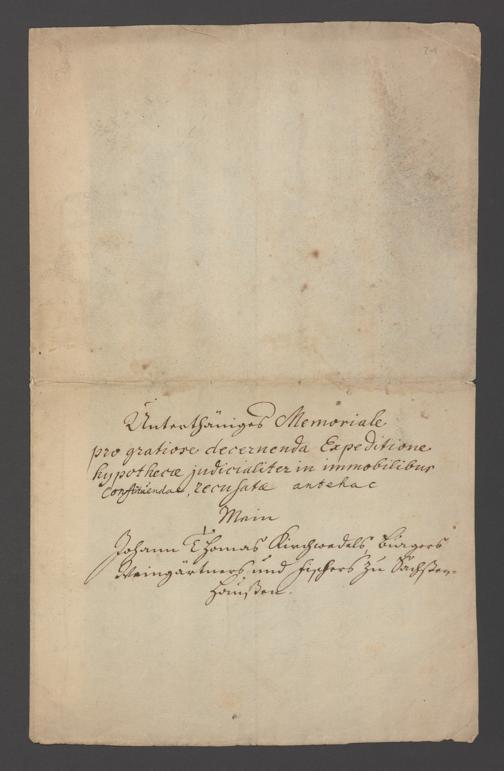 Unterthäniges Memoriale
pro gratiose decernenda Expeditione
hypothecæ judicialiter in immobilibus
constituendae, recusatæ antehac
Mein
Johann Thomas Kirchwedels, Bürgers
Weingärtners und Fischers zu Sachßen-
haußen.